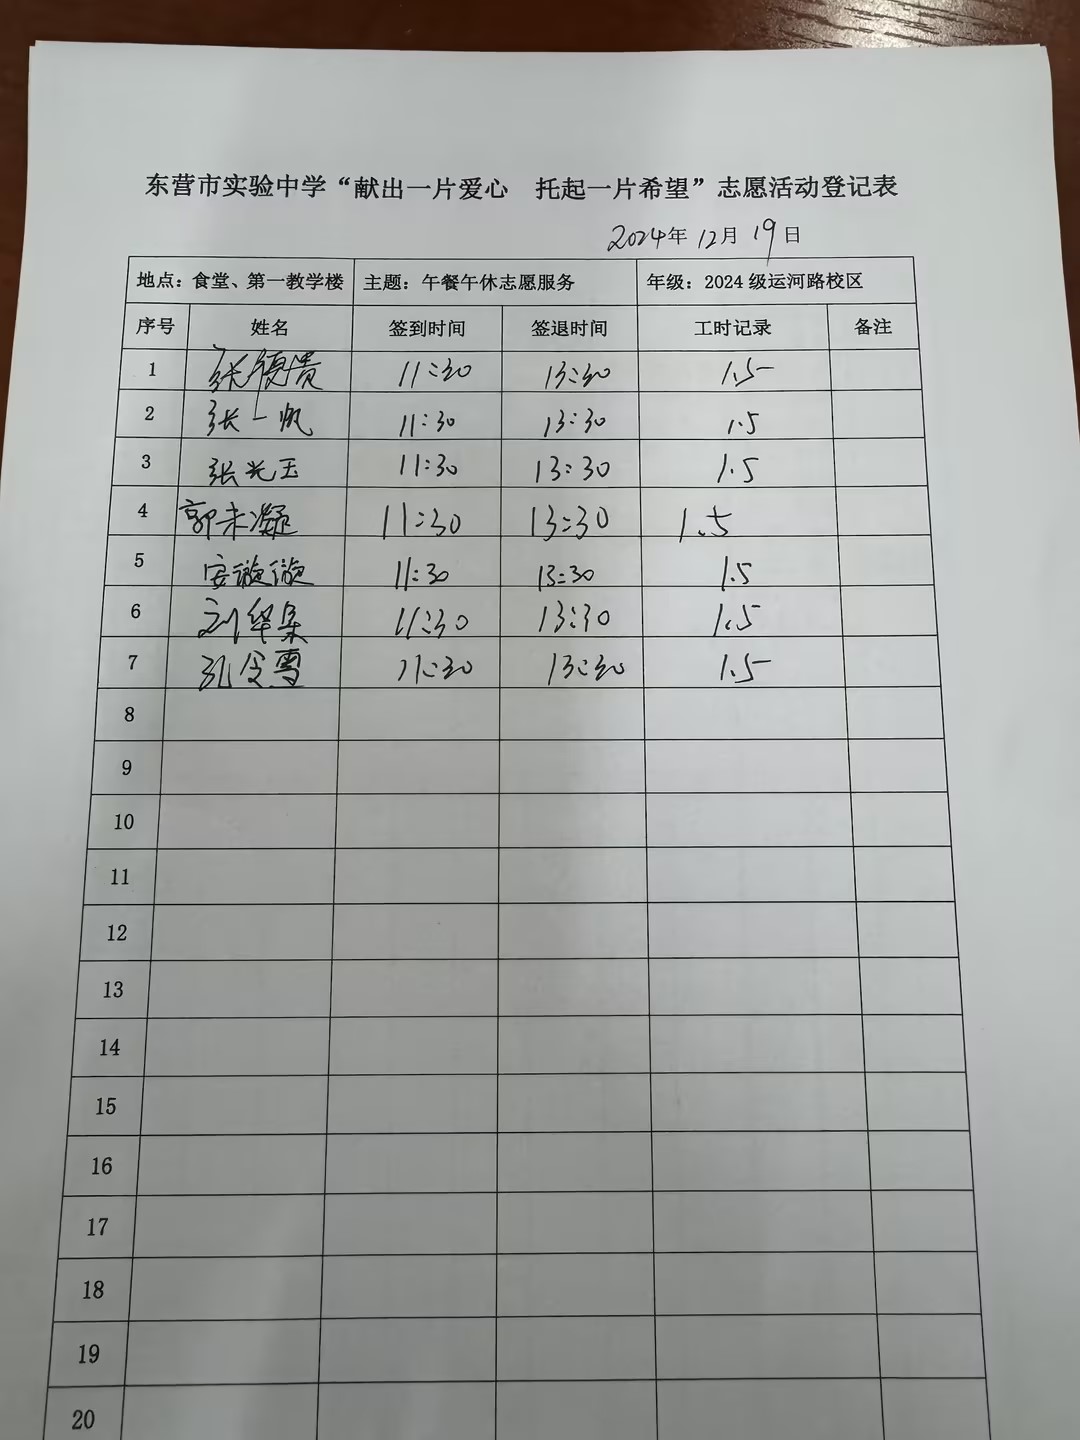 东营市实验中学“献出一片爱心 托起一片希望”志愿活动登记表
2024年 12月 19日
地点：食堂、第一教学楼 主题：午餐午休志愿服务 年级：2024 级运河路校区
序号 姓名 签到时间 签退时间 工时记录 备注
1 张德贵 11:30 13:30 1.5
2 张一帆 11:30 13:30 1.5
3 张光玉 11:30 13:30 1.5
4 郭未凝 11:30 13:30 1.5
5 安璇璇 11:30 13:30 1.5
6 刘华集 11:30 13:30 1.5
7 孔令雪 11:30 13:30 1.5
8
9
10
11
12
13
14
15
16
17
18
19
20